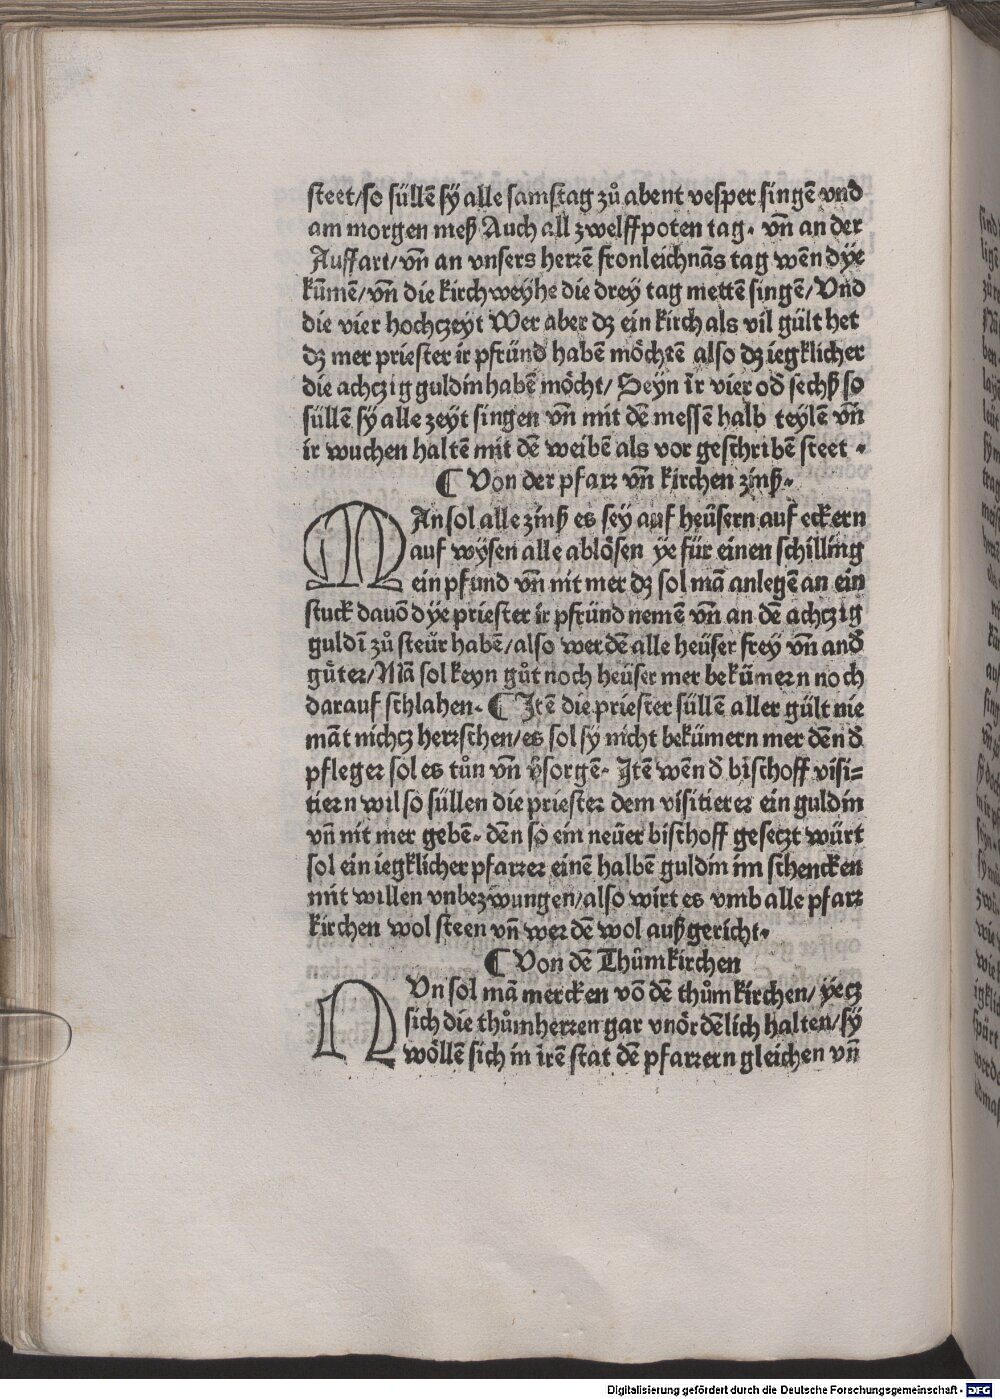 steet/so süllē sÿ alle samstag zů abent vesper singē vnd
am morgen meß Auch all zwelffpoten tag· vn̄ an der
Auffart/vn̄ an vnsers herꝛē fronleichnās tag wēn dye
kūmē/vn̄ die kirchweyhe die drey tag mettē singē/Vnd
die vier hochczeyt Wer aber dz ein kirch als vil gült het
dz mer priester ir pfründ habē möchtē also dz iegklicher
die achczig guldin habē möcht/ Seyn ir vier od̄ sechß so
süllē sÿ alle zeyt singen vn̄ mit dē messē halb teylē vn̄
ir wuchen haltē mit dē weibē als vor geschribē steet ·
¶ Von der pfarꝛ vn̄ kirchen zinß·
MAn sol alle zinß es sey auf heüsern auf eckern
auf wÿsen alle ablösen ÿe für einen schilling
ein pfund vn̄ nit mer dz sol mā anlegē an ein
stuck davō dye priester ir pfründ nemē vn̄ an dē achczig
guldī zů steür habē/also werdē alle heüser frey vn̄ and̄
gůter/Mā sol keyn gůt noch heüser mer bekümern noch
darauf schlahen· ¶ Itē die priester süllē aller gült nie
māt nichcz herꝛschen/es sol sy nicht bekümern mer dēn d̄
pfleger sol es tůn vn̄ v̄sorgē· Itē wēn d̄ bischoff visi=
tiern wil so süllen die priester dem visitierer ein guldin
vn̄ nit mer gebē· dēn so ein neüer bischoff gesetzt würt
sol ein iegklicher pfarꝛer einē halbē guldin im schencken
mit willen vnbezwungen/also wirt es vmb alle pfarꝛ
kirchen wol steen vn̄ werdē wol außgericht·
¶ Von dē Thůmkirchen
NVn sol mā mercken vō dē thůmkirchen/ ÿecz
sich die thůmherꝛen gar vnördēlich halten/sÿ
wöllē sich in irē stat dē pfarꝛern gleichen vn̄
Digitalisierung gefördert durch die Deutsche Forschungsgemeinschaft - DFG